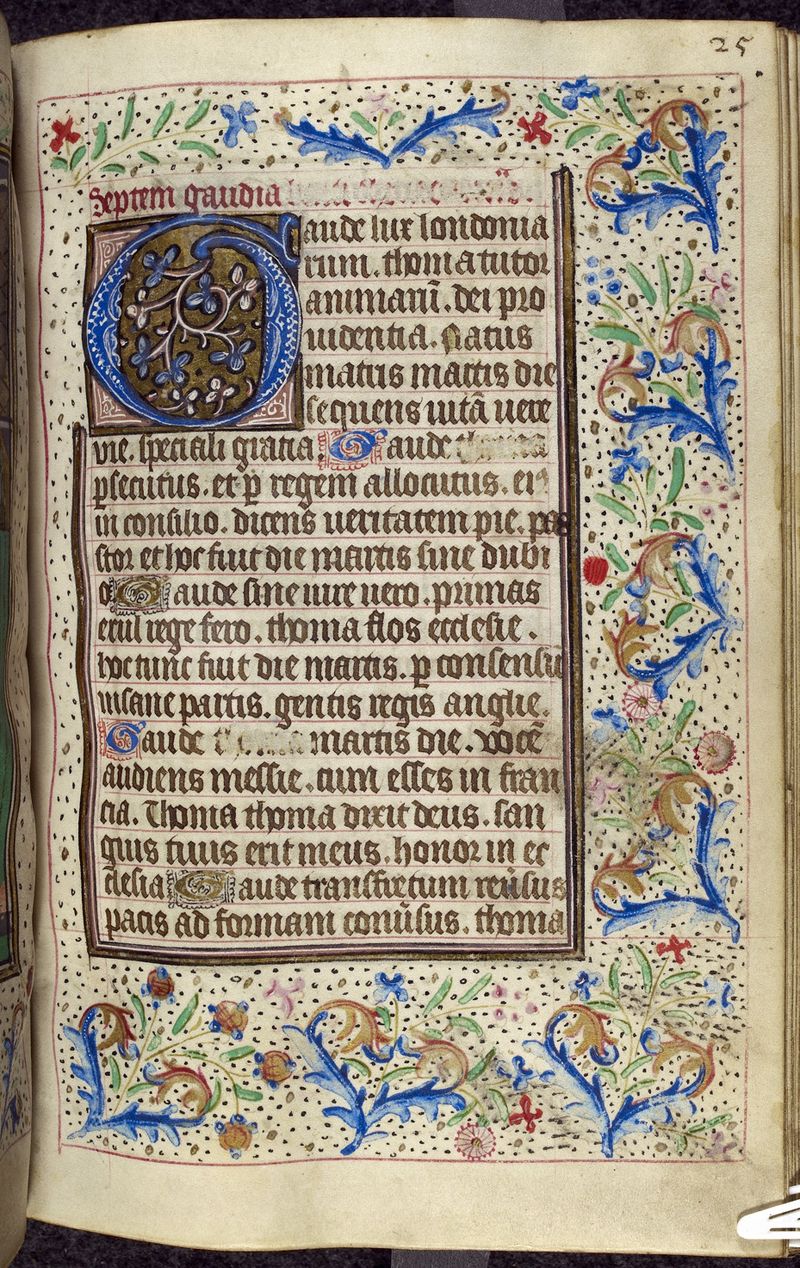 25
Septem gaudia
Gaude lux londonia
rum. thoma tutor
animarũ. dei pro
uidentia. Natus
matus martis die
sequens uitã uere
vie. speciali gratia Gaude
ꝑsecutus. et ꝑ regem allocutus. ei⁹
in consilio. dicens ueritatem pie. pa
stor et hoc fuit die martis sine dubi
o Gaude sine iure uero. primas
exul rege fero. thoma flos ecclesie.
hoc tunc fuit die martis. ꝑ consensũ
insane partis. gentis regis anglie.
Gaude martis die. vocẽ
audiens messie. cum esses in fran
cia. Thoma thoma dixit deus. san
guis tuus erit meus. honor in ec
clesia Gaude transfretum reũsus
pacis ad formam conũsus. thoma